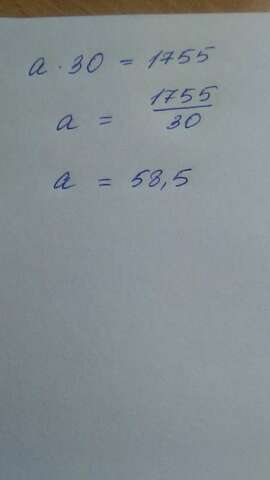 a · 30 = 1755
a = 1755/30
a = 58,5